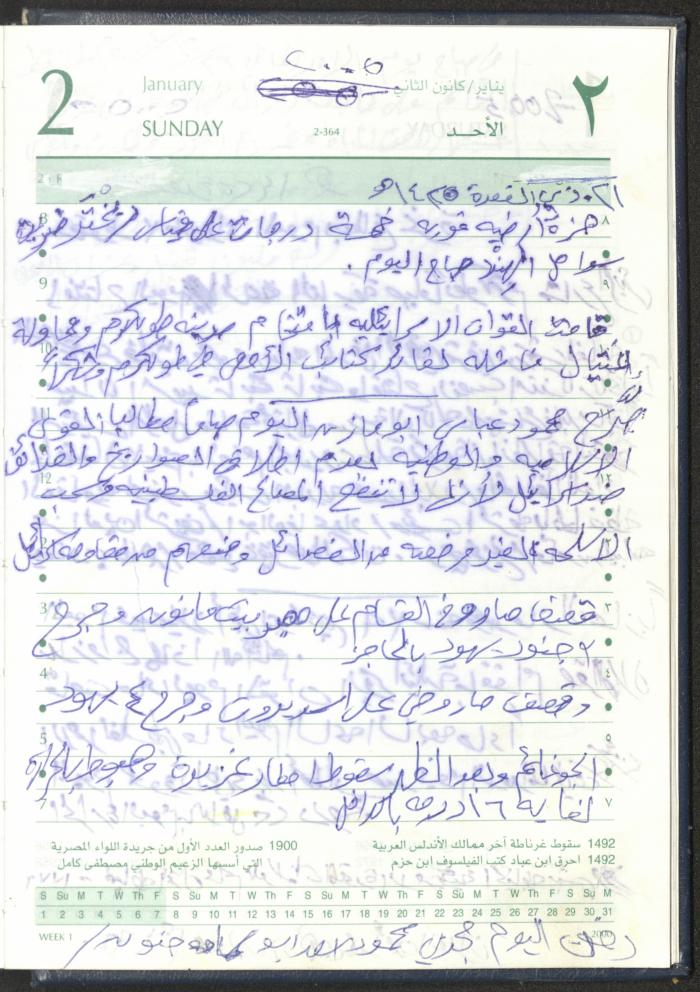 2 January يناير/كانون الثاني ٢
SUNDAY 2-364 الأحد
٢١ ذي القعدة ١٤٢٥هـ
هزة أرضية قوية خمسة درجات على مقياس ريختر ضربة
سواحل الهند صباح اليوم .
قامت القوات الاسرائيلية باقتحام مدينة طولكرم ومحاولة
إغتيال فاشلة لقائد كتائب الأقصى في طولكرم
صرح محمود عباس ابو مازن اليوم مطالبا القوى
الاسلامية والوطنية بعدم اطلاق الصواريخ والقذائف
ضد اسرائيل لأنها لا تنفع المصالح الفلسطينية وسحب
الاسلحة الغير مرخصة من الفصائل ومنعهم من مقاومة
قصف صاروخ القسام على بيت حانون وجرح
جنود يهود بالحاجز
وقصف صاروخي على اسديروت وجرح ٤ يهود
الجو غائم وبعد الظهر سقوط امطار غزيرة وهبوط بالحرارة
لغاية ١٦ درجة
1492 سقوط غرناطة آخر ممالك الأندلس العربية
1492 احرق ابن عباد كتب الفيلسوف ابن حزم
1900 صدور العدد الأول من جريدة اللواء المصرية
التي أسسها الزعيم الوطني مصطفى كامل
S Su M T W Th F S Su M T W Th F S Su M T W Th F S Su M T W Th F S Su M
1 2 3 4 5 6 7 8 9 10 11 12 13 14 15 16 17 18 19 20 21 22 23 24 25 26 27 28 29 30 31
WEEK 1 2000
اليوم محمود ابو